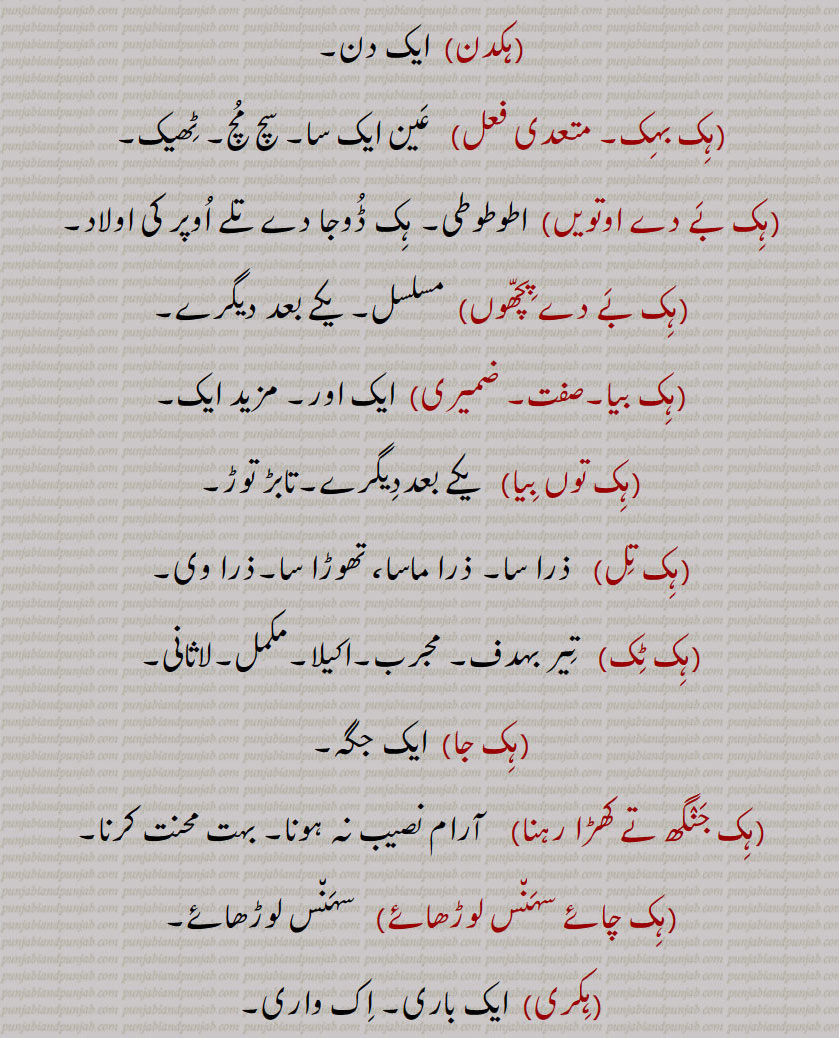 (ہکدن) ایک دن۔
(ہِک بہِک۔ متعدی فعل) عَین ایک سا۔ سچ مُچ۔ ٹِھیک۔
(ہِک بَے دے اوتویں) اطوطوطی۔ ہِک ڈُوجا دے تلے اُوپر کی اولاد۔
(ہِک بَے دے پِچھّوں) مسلسل۔ یکے بعد دیگرے۔
(ہِک بیا۔صفت۔ ضمیری) ایک اور۔ مزید ایک۔
(ہِک توں بِیا) یکے بعد دِیگرے۔تابڑ توڑ۔
(ہِک تِل) ذرا سا۔ ذرا ماسا، تھوڑا سا۔ذرا وی۔
(ہِک ٹِک) تِیر بہدف۔ مجرب۔اکیلا۔مکمل۔لاثانی۔
(ہِک جا) ایک جگہ۔
(ہِک جَنْگھ تے کھڑا رہنا) آرام نصیب نہ ہونا۔ بہت محنت کرنا۔
(ہِک چائے سہَنّس لوڑھائے) سہَنّس لوڑھائے۔
(ہِکری) ایک باری۔ اِک واری۔